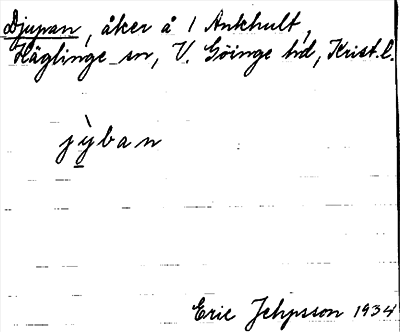 Djupan, åker å 1 Ankhult,
Häglinge sn, V. Göinge hd, Krist. l.
jỳban
Eric Jehpsson 1934